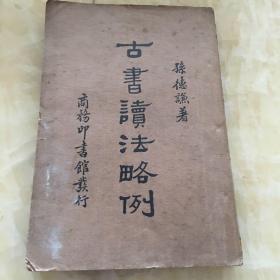 孫德謙著
古書讀法略例
商務印書館發行